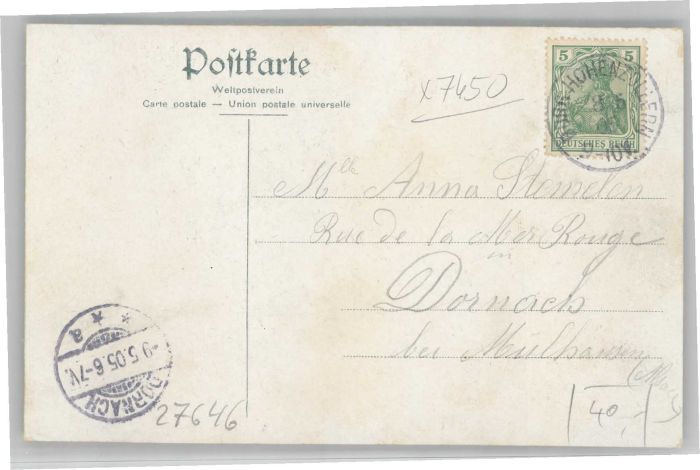 Postkarte
Weltpostverein
Carte postale – Union postale universelle
x7450
5 5
DEUTSCHES REICH
HOHENZOLLERN
Mlle Anna Stemelen
Rue de la Mer Rouge
in
Dornach
bei Mulhausen
* * a
-9.5.05.6-7V.
DORNACH
27646
40,-